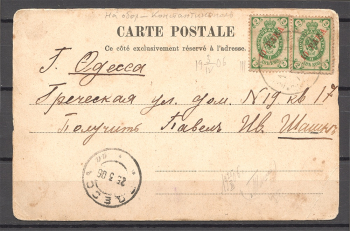 На обор. - Константинополь
CARTE POSTALE
Ce côté exclusivement réservé à l'adresse.
Г. Одесса
Греческая ул. дом. N 19 кв 17
Получить Павелъ Ив. Шашк
ОДЕССА
25 3 06